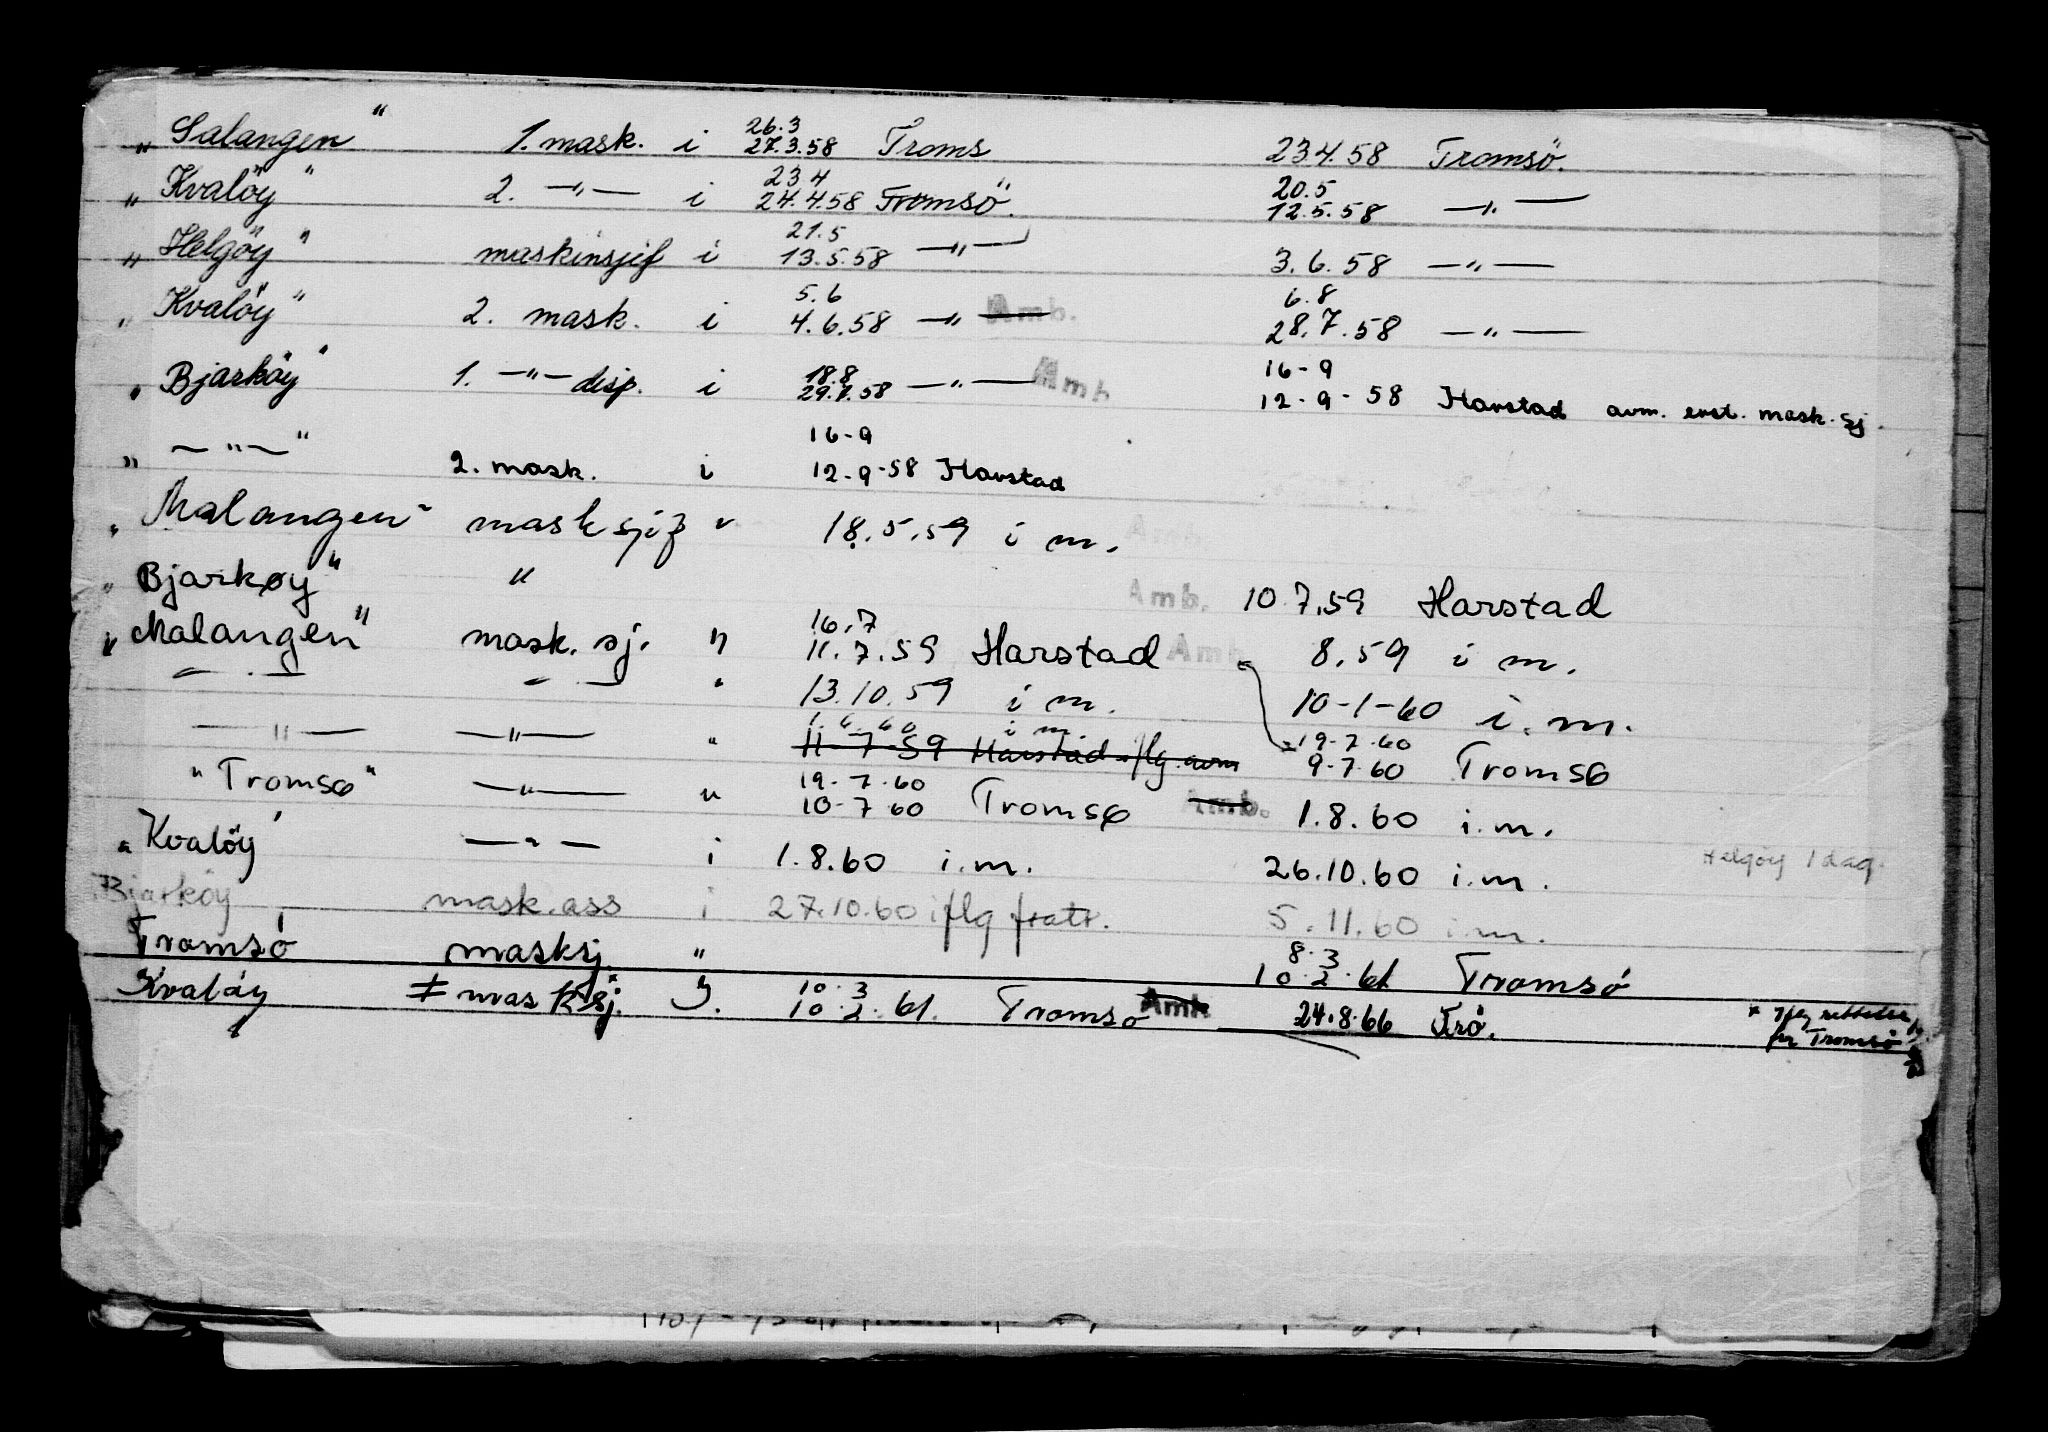 „ Salangen " 1. mask. i 26.3 27.3.58 Troms 23.4.58 Tromsö.
„ Kvalöy " 2. —"— i 23 4 24.4.58 Tromsö. 20.5 12.5.58 —"—
„ Helgöy " maskinsjef i 21.5 13.5.58 —"— 3.6.58 —"—
„ Kvalöy " 2. mask. i 5.6 4.6.58 —" Amb. 6.8 28.7.58 —"—
„ Bjarköy " 1. —"— disp. i 18.8 29.7.58 —"— Amb 16-9 12-9-58 Harstad avm. erst. mask.sj.
„ —"— " 2. mask. i 16-9 12-9-58 Harstad
„ Malangen " masksjef " 18.5.59 i m. Amb.
„ Bjarkøy " " Amb. 10.7.59 Harstad
„ Malangen " mask. sj. " 16.7 11.7.59 Harstad Amb 8.59 i m.
—"— —"— " 13.10.59 i m. 10-1-60 i.m.
—"— —"— " 1.6.60 i m. 11-7-59 Harstad flg. avm 19-7-60 9-7-60 Tromsø
" Tromsø " —"— " 19-7-60 10-7-60 Tromsø Amb. 1.8.60 i.m.
„ Kvalöy ' —"— i 1.8.60 i.m. 26.10.60 i.m. Helgöy 1 dag.
Bjarköy mask.ass i 27.10.60 iflg fratr. 5.11.60 i.m.
Tromsö masksj. " 8.3 10.2.61 Tromsö
Kvalöy mask sj. 10.3 10.2.61. Tromsö Amb 24.8.66 Trö.
x rettelse
fra Tromsö